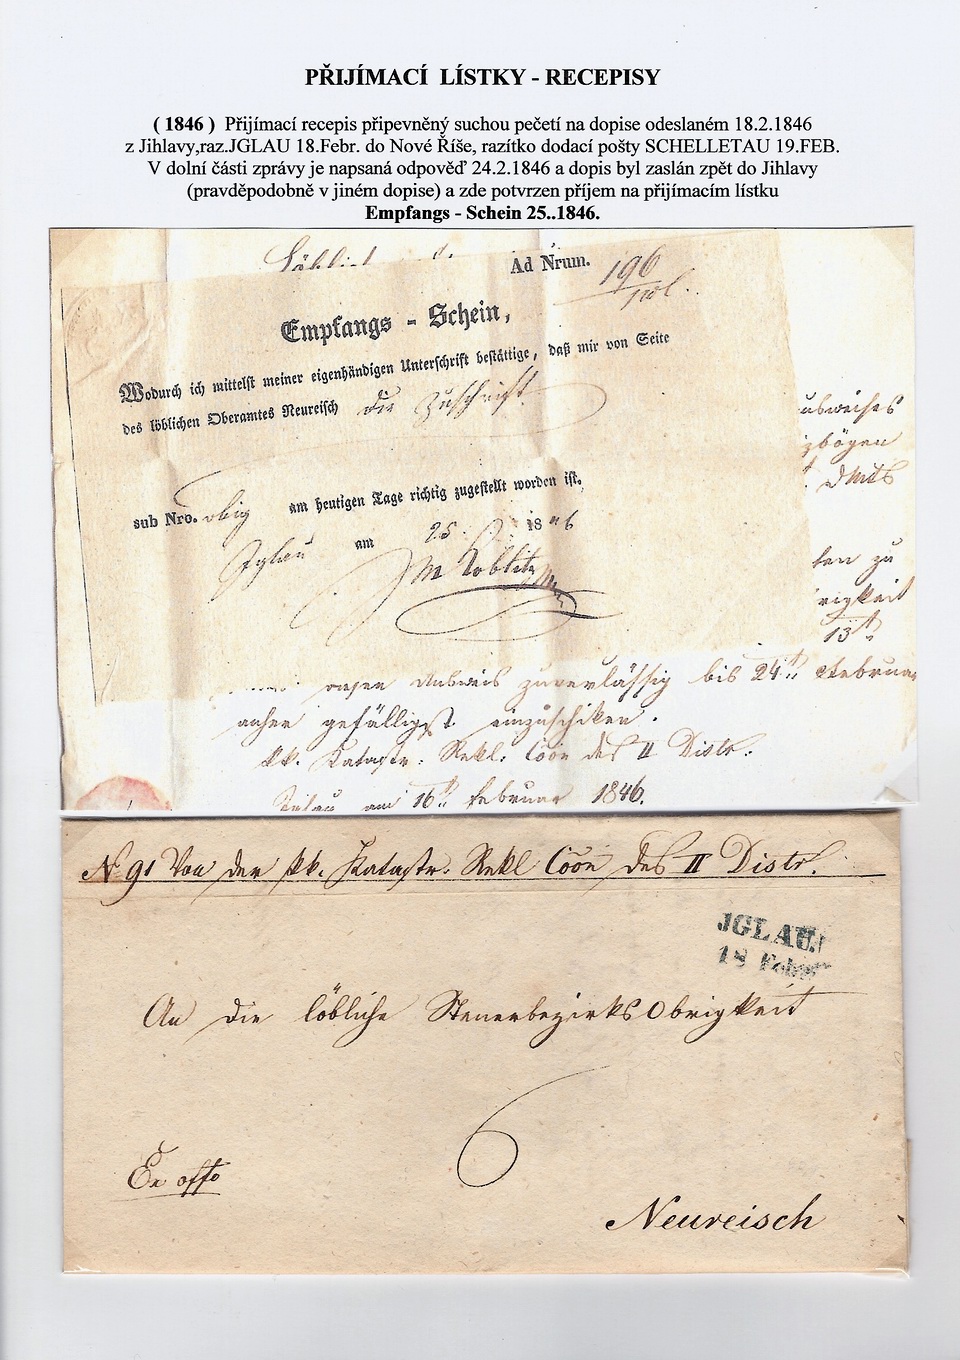 PŘIJÍMACÍ LÍSTKY - RECEPISY
( 1846 ) Přijímací recepis připevněný suchou pečetí na dopise odeslaném 18.2.1846
z Jihlavy,raz.JGLAU 18.Febr. do Nové Říše, razítko dodací pošty SCHELLETAU 19.FEB.
V dolní části zprávy je napsaná odpověď 24.2.1846 a dopis byl zaslán zpět do Jihlavy
(pravděpodobně v jiném dopise) a zde potvrzen příjem na přijímacím lístku
Empfangs - Schein 25..1846.
Ad Nrum. 196
Empfangs - Schein,
Wodurch ich mittelst meiner eigenhändigen Unterschrift bestättige, daß mir von Seite
des löblichen Oberamtes Neureisch die Zuschrift
sub Nro. obig am heutigen Tage richtig zugestellt worden ist.
Iglau am 25 1846
ten zu
13t
bis 24t Februar
anher gefälligst einzuschiken.
kk. Katastr. Rekl. Coon des II Distr.
Iglau am 16t Februar 1846.
N 91 Von der kk. Katastr. Rekl Coon des II Distr.
JGLAU.
18 Febr
An die löbliche Steuerbezirks Obrigkeit
6
Ex offo
Neureisch